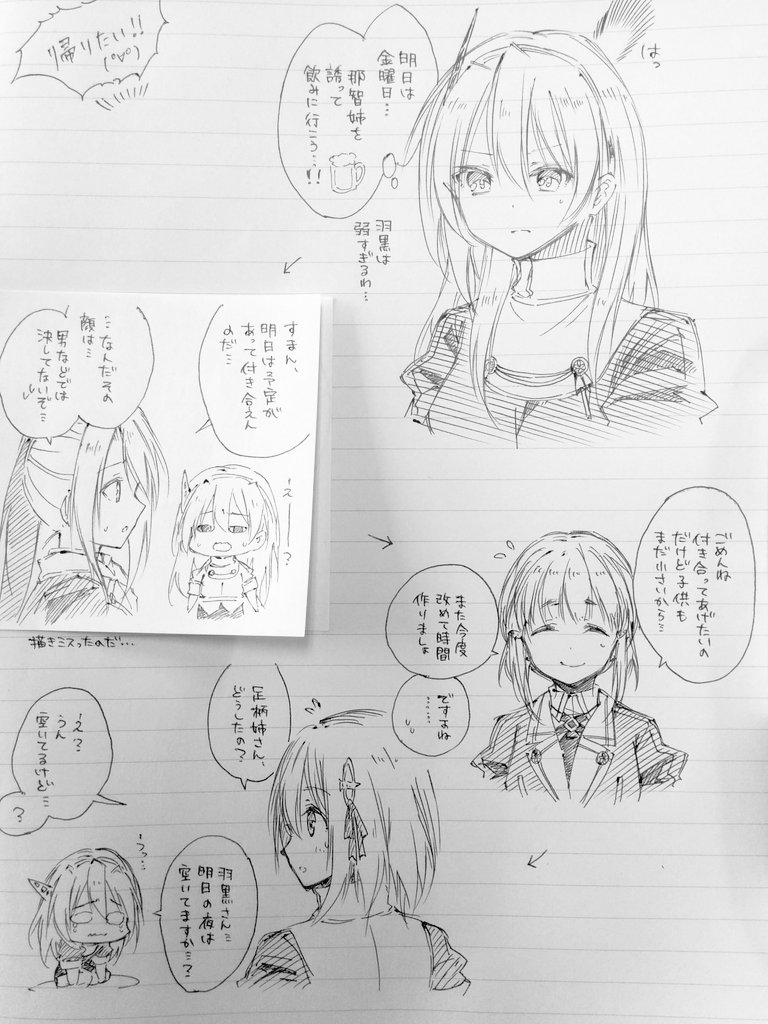 帰りたい!!
(°∀°)
明日は
金曜日…
那智姉を
誘って
飲みに行こう…!!
はっ
羽黒は
弱すぎるわ…
すまん、
明日は予定が
あって付き合えん
のだ…
えーー?
…なんだその
顔は…
男などでは
決してないぞ…
描きミスったのだ…
ごめんね
付き合ってあげたいの
だけど子供も
まだ小さいから…
また今度
改めて時間
作りましょ
ですよね
……
足柄姉さん、
どうしたの?
羽黒さん…
明日の夜は
空いてますか…?
うっ…
え?
うん
空いてるけど…
?